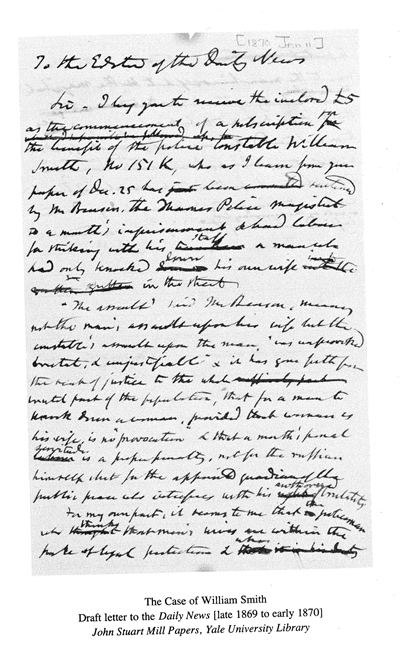 [1870 Jan 11]
To the Editor of the Daily News
Sir—I beg you to receive the inclosed £5
as the commencement of a subscription for
the benefit of the police constable William
Smith, No 151 K, who as I learn from your
paper of Dec. 25 has been sentenced
by Mr Benson, the Thames Police magistrate
to a month's imprisonment & hard labour
for striking with his staff a man who
had only knocked down his own wife
in the street
"The assault" said Mr Benson, meaning
not the man's assault upon his wife but the
constable's assault upon the man, "was unprovoked
brutal, & unjustifiable" & it has gone forth from
the seat of justice to the whole
brutal part of the population, that for a man to
knock down a woman, provided that woman is
his wife, is no provocation & that a month's penal
servitude is a proper penalty, not for the ruffian
himself but for the appointed guardian of the
public peace who interferes with his brutality
For my own part, it seems to me that the policeman
who thinks that men's wives are within the
pale of legal protection &
The Case of William Smith
Draft letter to the Daily News [late 1869 to early 1870]
John Stuart Mill Papers, Yale University Library